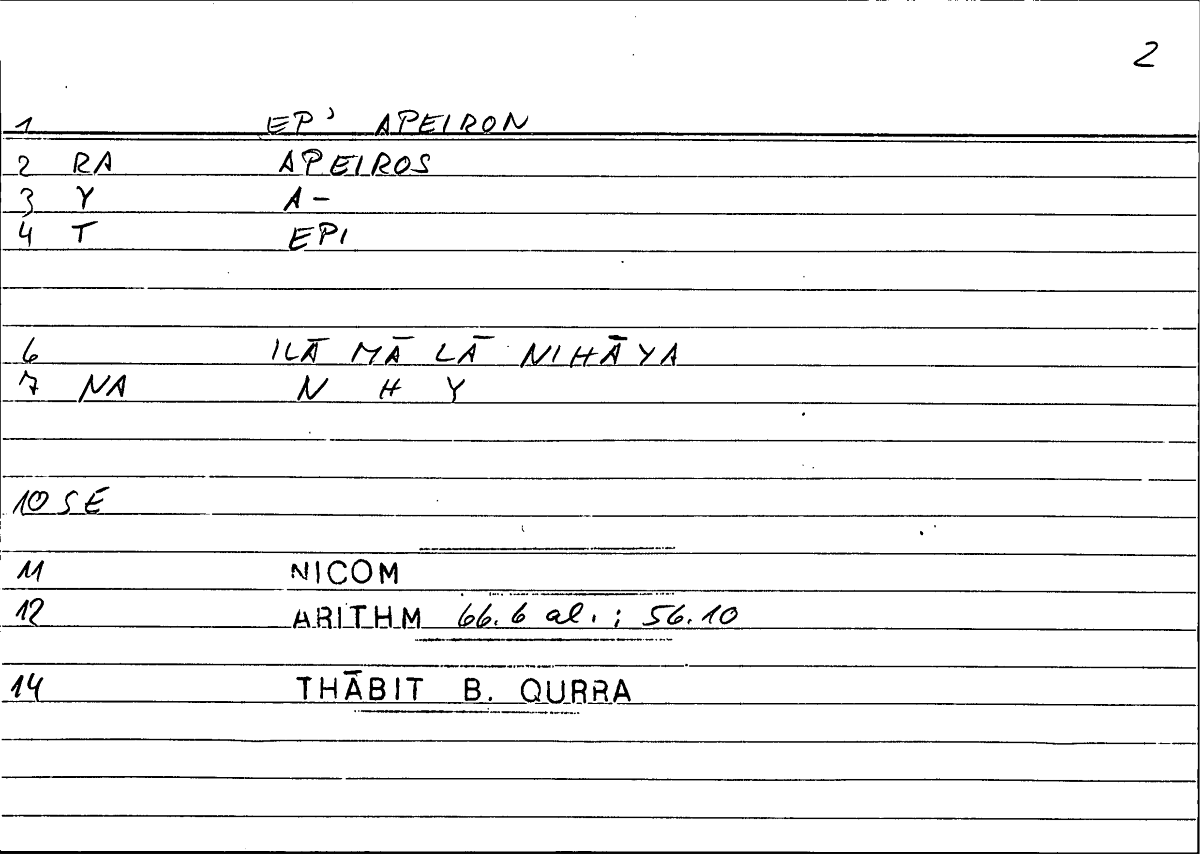 2
1 EP' APEIRON
2 RA APEIROS
3 Y A-
4 T EPI
6 ILĀ MĀ LĀ NIHĀYA
7 NA N H Y
10 SE
11 NICOM
12 ARITHM 66.6 al. ; 56.10
14 THĀBIT B. QURRA